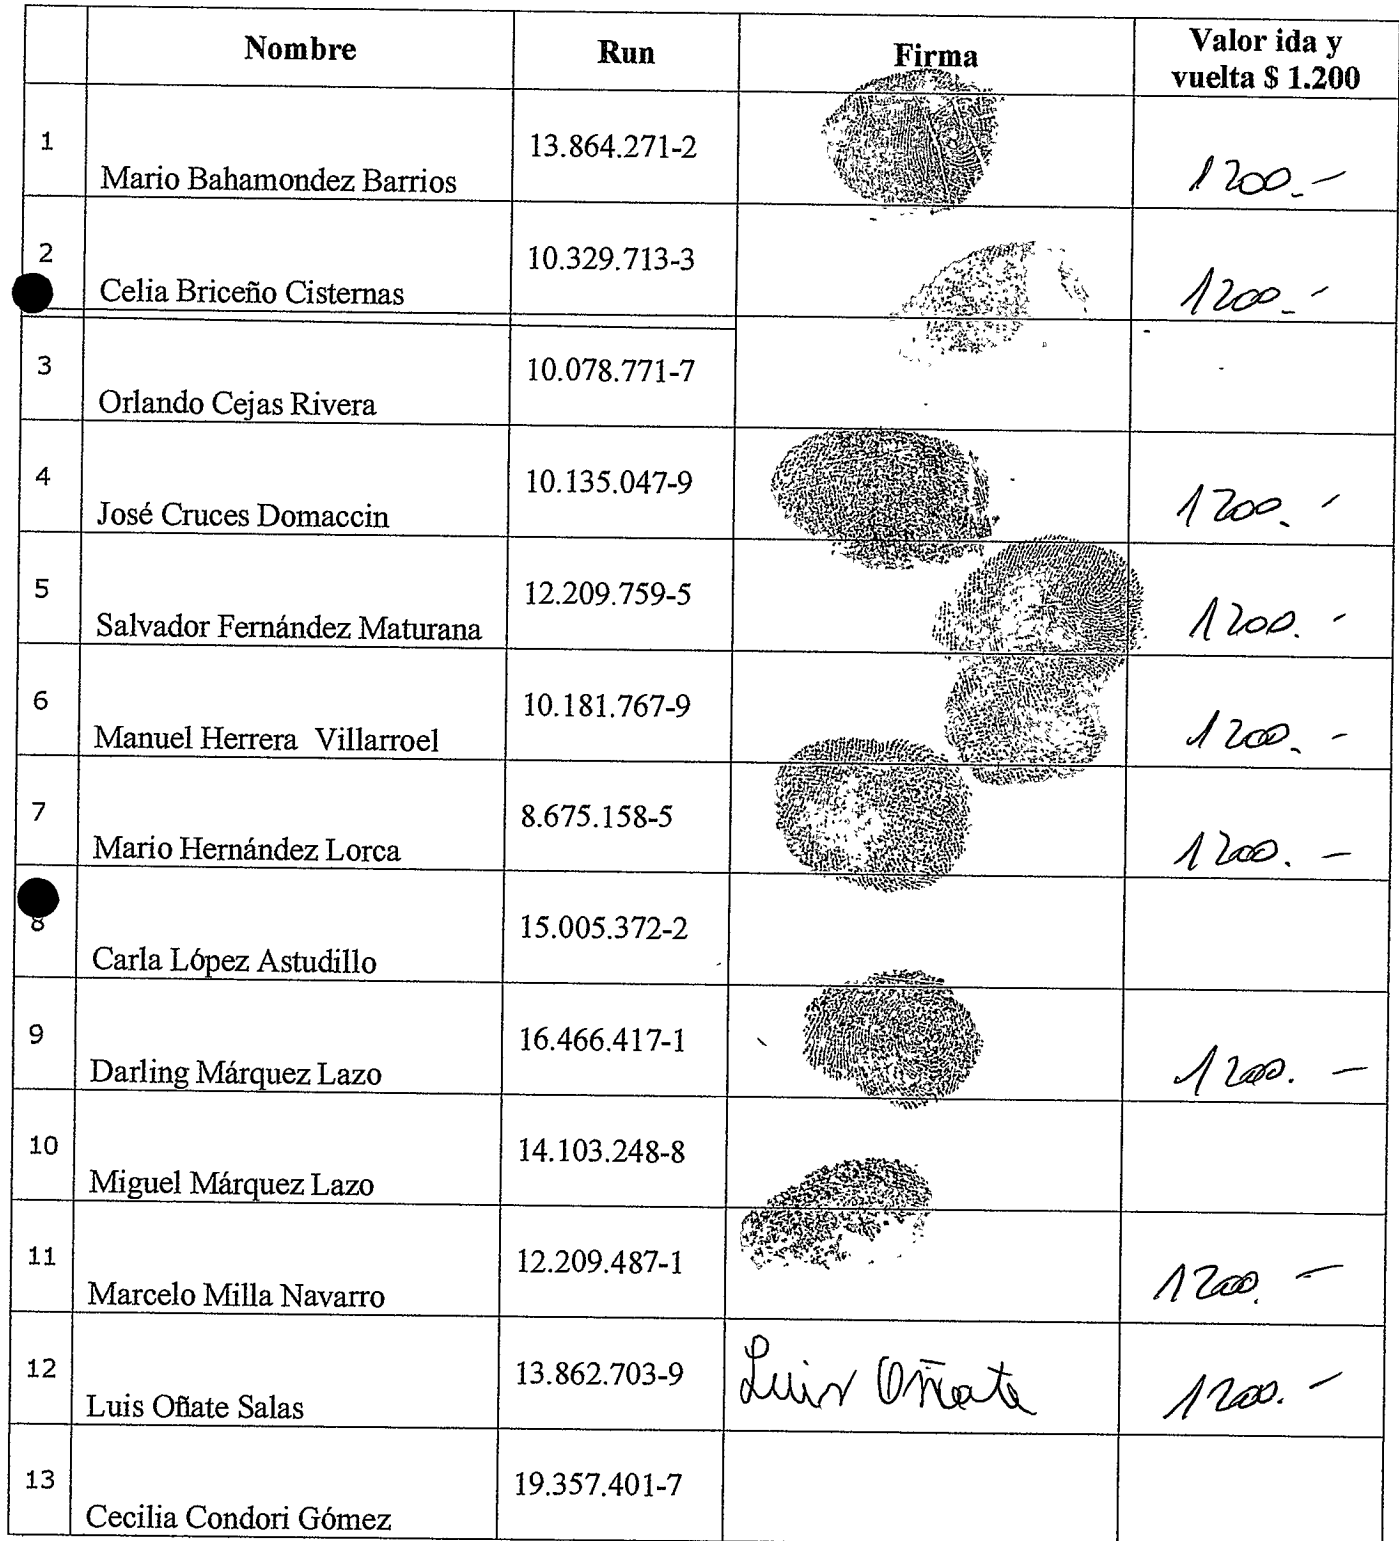 Nombre Run Firma Valor ida y
vuelta $ 1.200
1 Mario Bahamondez Barrios 13.864.271-2 1200.-
2 Celia Briceño Cisternas 10.329.713-3 1200.-
3 Orlando Cejas Rivera 10.078.771-7
4 José Cruces Domaccin 10.135.047-9 1200.-
5 Salvador Fernández Maturana 12.209.759-5 1200.-
6 Manuel Herrera Villarroel 10.181.767-9 1200.-
7 Mario Hernández Lorca 8.675.158-5 1200.-
8 Carla López Astudillo 15.005.372-2
9 Darling Márquez Lazo 16.466.417-1 1200.-
10 Miguel Márquez Lazo 14.103.248-8
11 Marcelo Milla Navarro 12.209.487-1 1200.-
12 Luis Oñate Salas 13.862.703-9 Luis Oñate 1200.-
13 Cecilia Condori Gómez 19.357.401-7